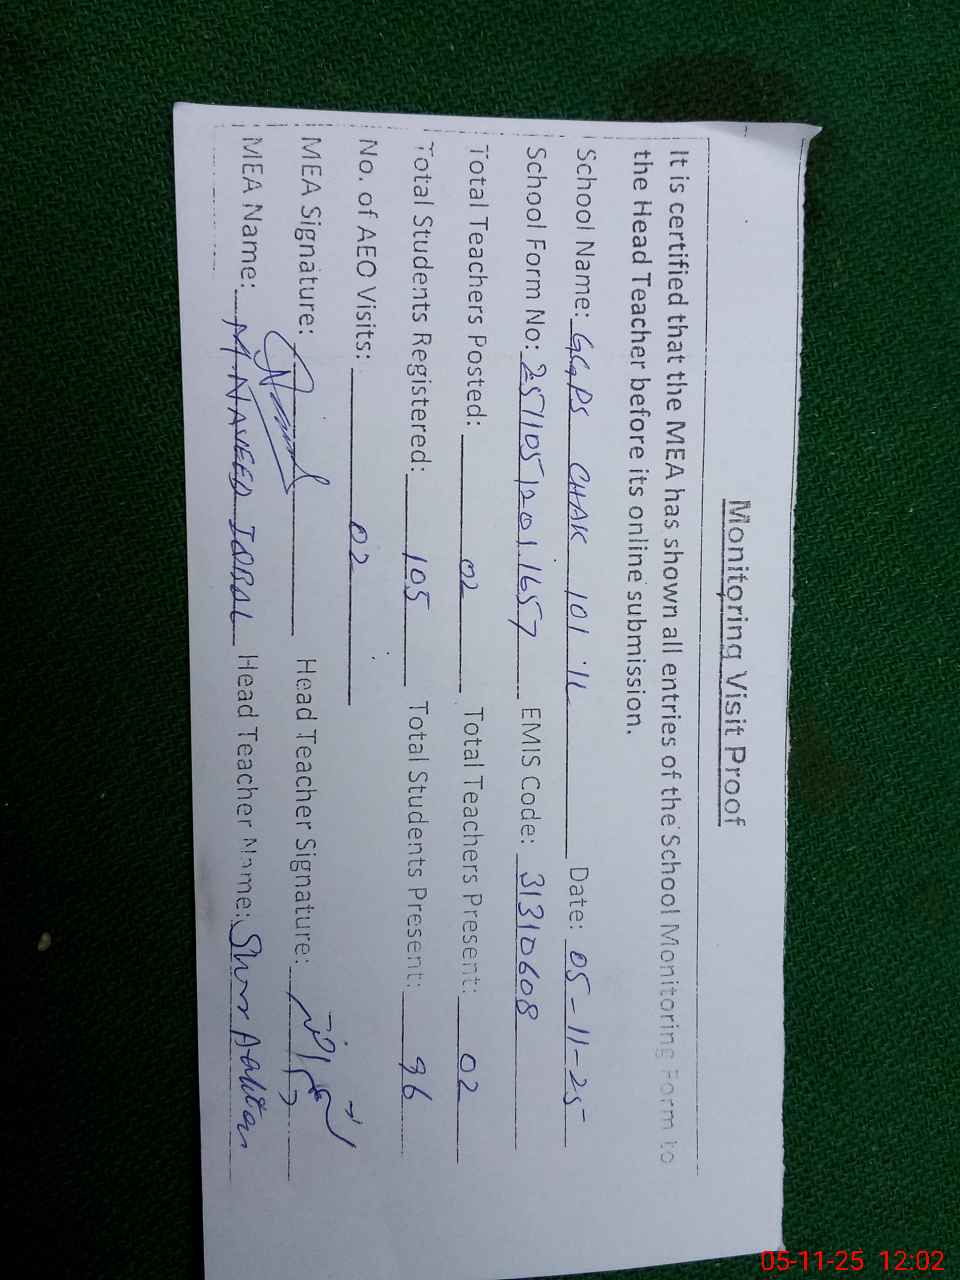 Monitoring Visit Proof
It is certified that the MEA has shown all entries of the School Monitoring Form to
the Head Teacher before its online submission.
School Name: GGPS CHAK 101 1L Date: 05-11-25
School Form No: 2511051201.1657 EMIS Code: 31310608
Total Teachers Posted: 02 Total Teachers Present: 02
Total Students Registered: 105 Total Students Present: 96
No. of AEO Visits: 02
MEA Signature: Head Teacher Signature:
MEA Name: M. NAVEED IQBAL Head Teacher Name:
05-11-25 12:02